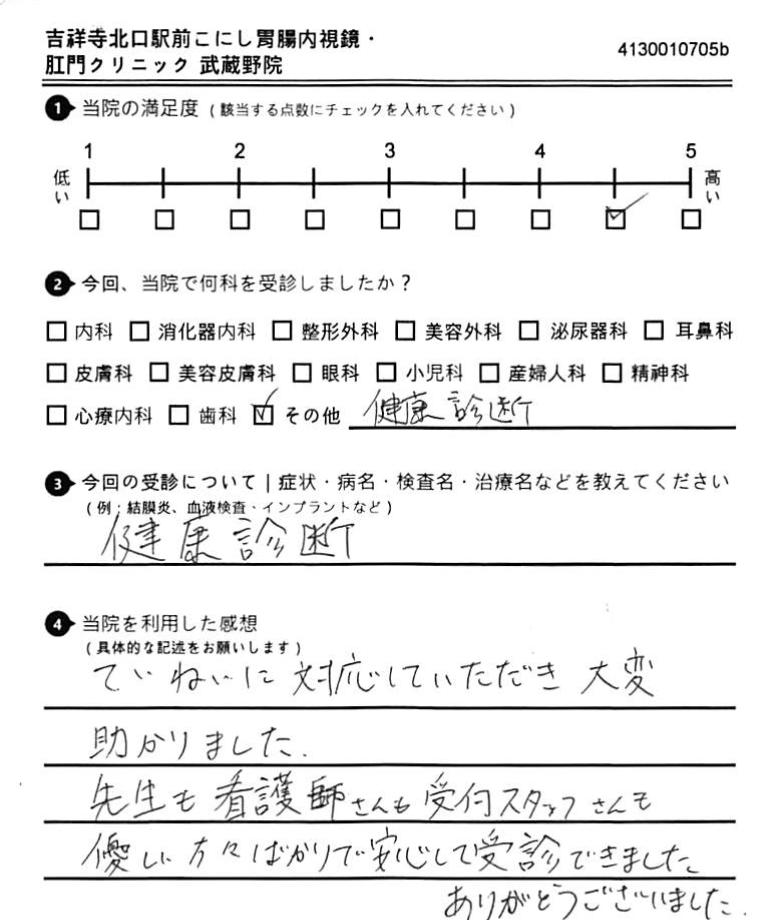 吉祥寺北口駅前こにし胃腸内視鏡・
肛門クリニック 武蔵野院
4130010705b
1 当院の満足度 (該当する点数にチェックを入れてください)
1 2 3 4 5
低い 高い
2 今回、当院で何科を受診しましたか？
内科 消化器内科 整形外科 美容外科 泌尿器科 耳鼻科
皮膚科 美容皮膚科 眼科 小児科 産婦人科 精神科
心療内科 歯科 その他 健康診断
3 今回の受診について | 症状・病名・検査名・治療名などを教えてください
(例：結膜炎、血液検査・インプラントなど)
健康診断
4 当院を利用した感想
(具体的な記述をお願いします)
ていねいに対応していただき 大変
助かりました.
先生も看護師さんも受付スタッフさんも
優しい方々ばかりで安心して受診できました
ありがとうございました.